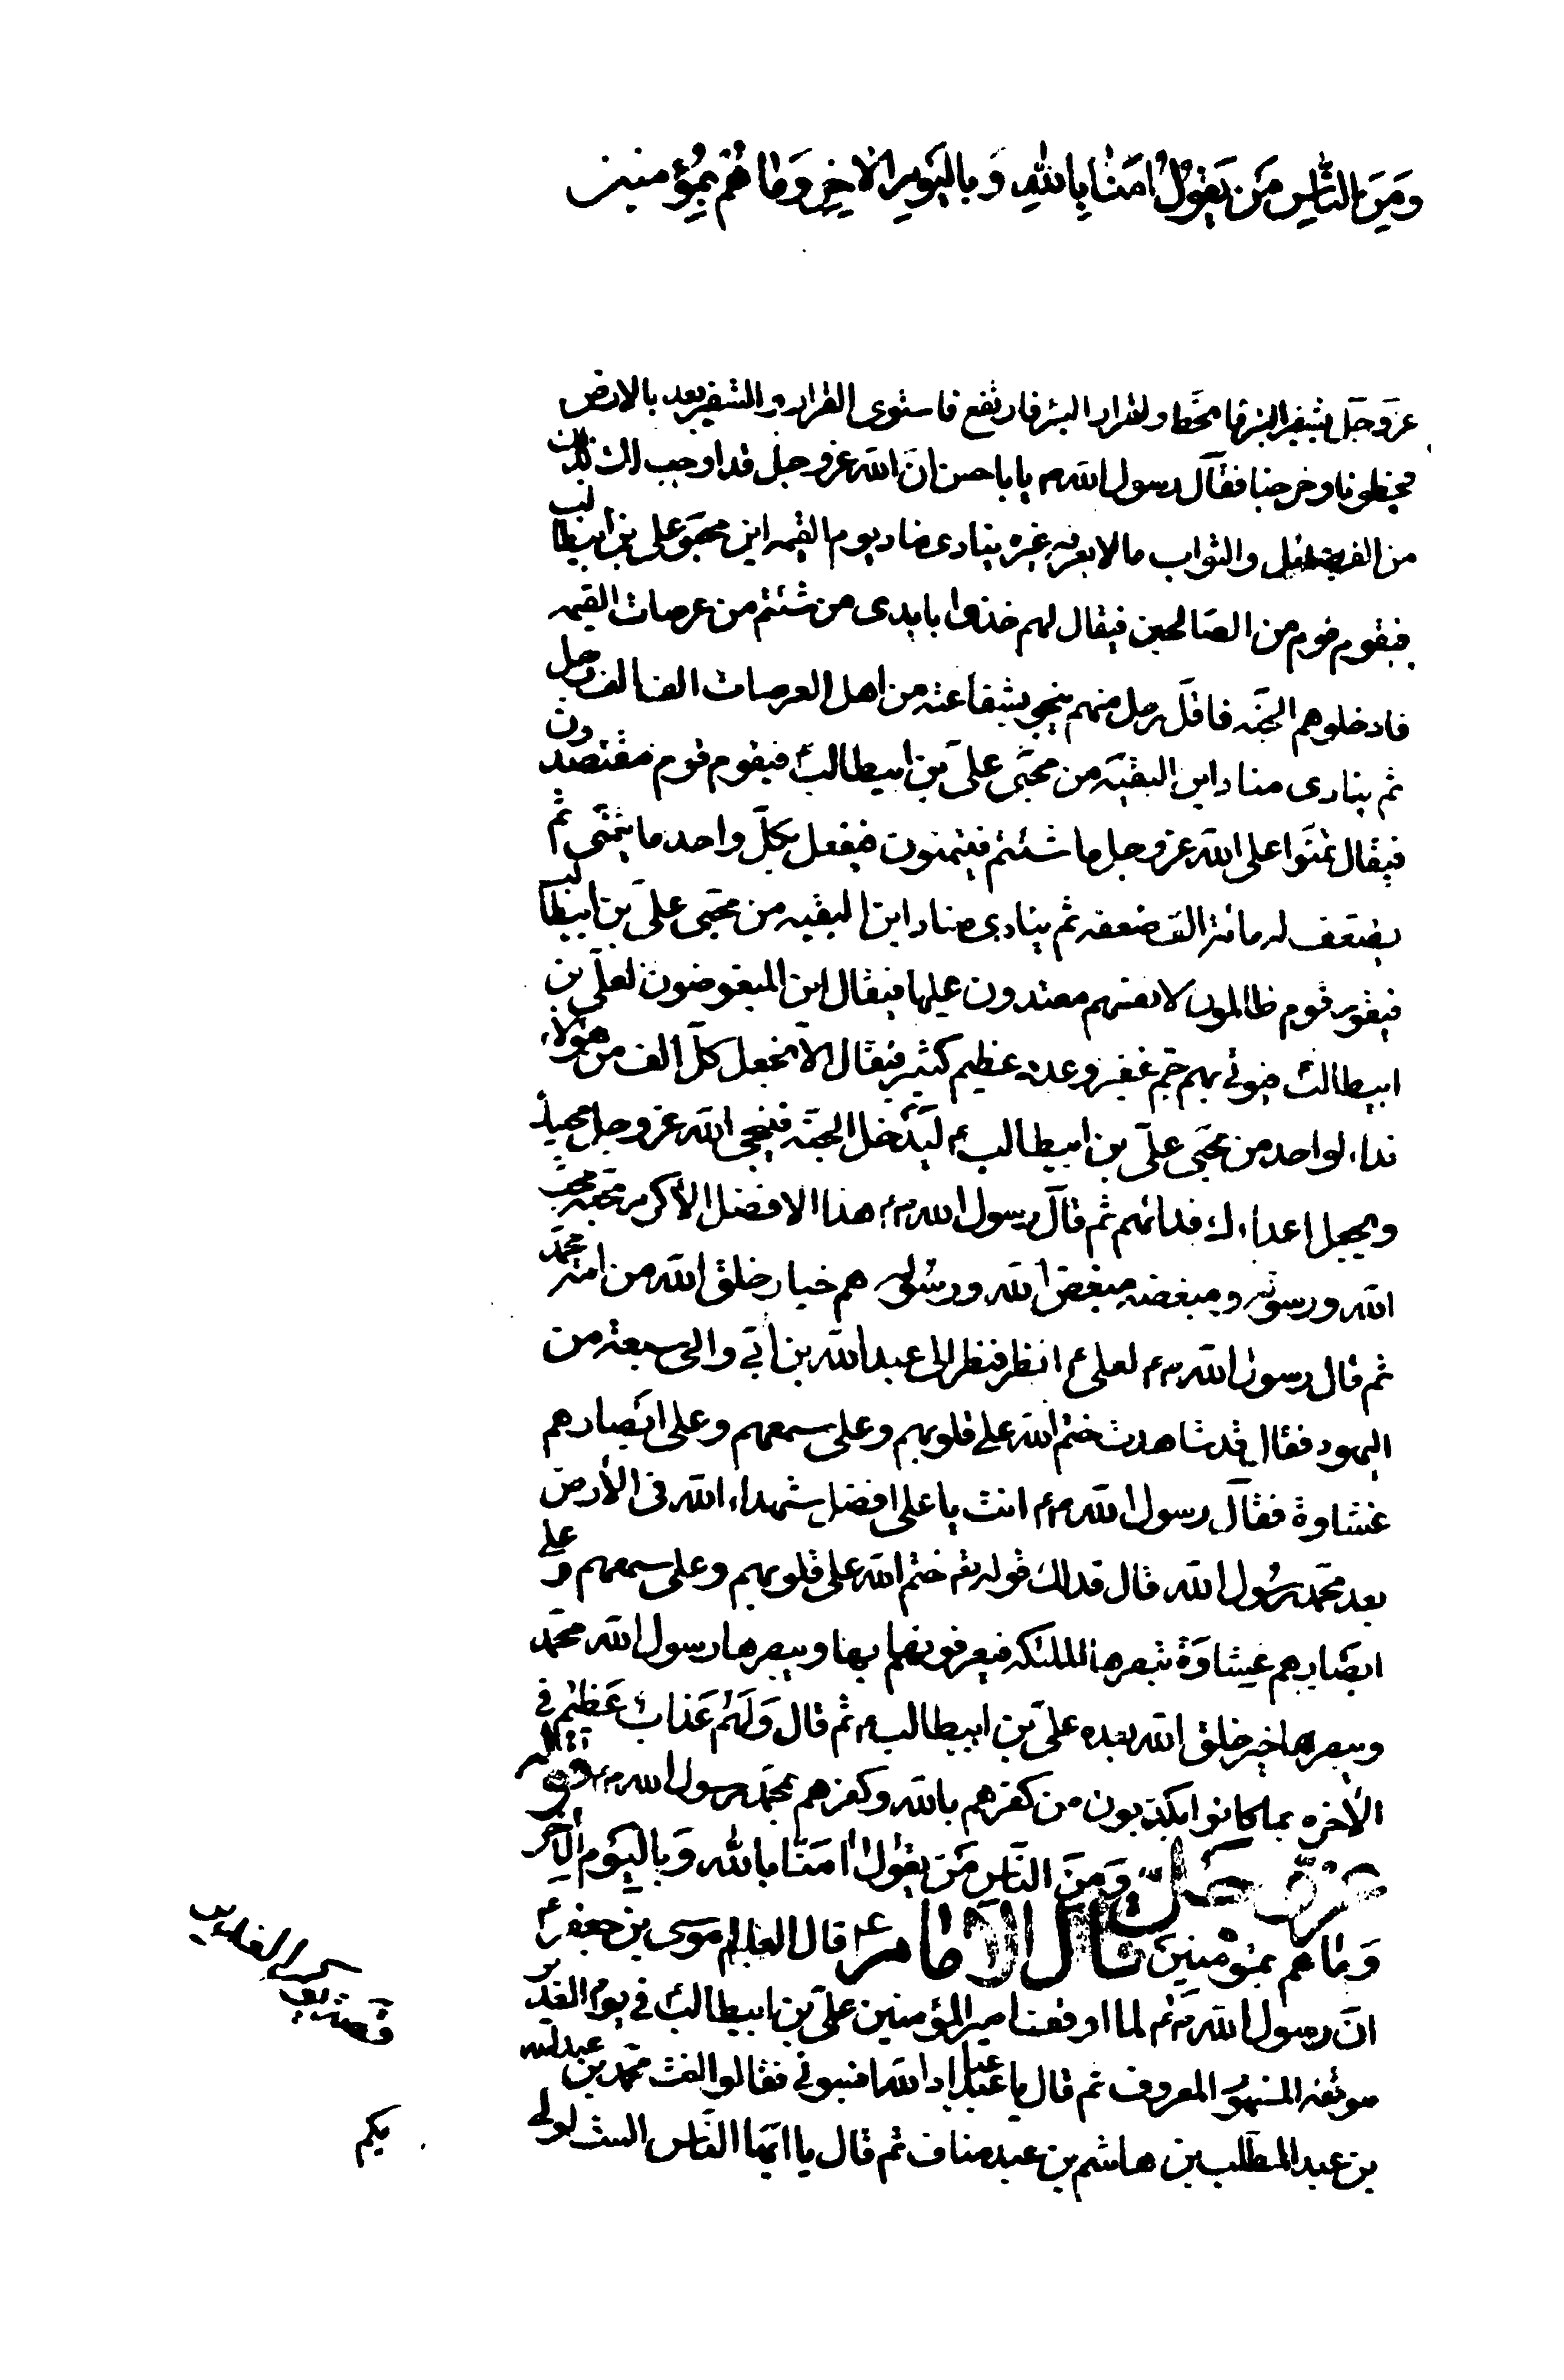 وَمِنَ النَّاسِ مَن يَقُولُ امَنَّا بِاللهِ وَ بِاليَومِ الاخِرِ وَمَا هُم بِمُؤمنين
عزّ وجلّ بشفير البئر فانحطّ ولقرار البئر فارتفع فاستوى القرار والشفير بعد بالارض
فخطونا وخرجنا فقال رسول الله ص يا باحسن انّ الله عزّ وجلّ قد اوجب لك بذلك
من الفضائل والثواب ما لا يعرفه غيره ينادى مناد يوم القيمه اين محبّو على بن ابيطالب
فيقوم قوم من الصّالحين فيقال لهم خذوا بايدى من شئتم من عرصات القيمه
فادخلوهم الجنّه فاقلّ رجل منهم ينجى بشفاعته من اهل العرصات الف الف رجل
ثم ينادى مناد اين البقيّه من محبّى علىّ بن ابيطالب فيقوم قوم مقتصدون
فيقال تمنّوا على الله عز وجل ما شئتم فيتمنون فيفعل بكلّ واحد ما يتمنّى ثم
يضعّف له مائة الف ضعف ثم ينادى مناد اين البقيه من محبّى علىّ بن ابيطالب
فيقوم قوم ظالمون لانفسهم معتدون عليها فيقال اين المبغوضون لعلىّ بن
ابيطالب فيوتى بهم جمّ غفير وعدد عظيم كثير فيقال الا نجعل كلّ الف من هؤلاء
فداء لواحد من محبّى علىّ بن ابيطالب ع ليدخل الجنّه فينجى الله عز وجل محبيك
ويجعل اعداءك فدائهم ثم قال رسول الله ص هذا الافضل الاكرم محبّه محبّ
الله ورسوله ومبغضه مبغض الله ورسوله هم خيار خلق الله من امة محمّد
ثم قال رسول الله ص لعلى ع انظر فنظر الى عبد الله بن ابىّ والى سبعة من
اليهود فقال قد شاهدت ختم الله على قلوبهم وعلى سمعهم وعلى ابصارهم
غشاوة فقال رسول الله ص انت يا على افضل شهداء الله فى الارض
بعد محمّد رسول الله قال فذلك قوله تع ختم الله على قلوبهم وعلى سمعهم وعلى
ابصارهم غشاوة تبصرها الملئكه فيعرفونهم بها ويبصرها رسول الله محمّد
ويبصرها خير خلق الله بعده علىّ بن ابيطالب ع ثم قال ولهم عذاب عظيم فى
الاخره بما كانوا يكذبون من كفرهم بالله وكفرهم بمحمّد رسول الله ص قوله
عزّ وجلّ وَمِنَ النَّاسِ مَن يقول امَنّا بالله وَبِاليَوم الاخر
وَما هم بمؤمنين قال الامام ع قال العالم موسى بن جعفر ع
انّ رسول الله ص لما اوقف امير المؤمنين علىّ بن ابيطالب فى يوم الغدير
موقفه المشهور المعروف ثم قال يا عباد الله انسبونى فقالوا انت محمّد بن عبد الله
بن عبد المطّلب بن هاشم بن عبد مناف ثم قال يا ايّها النّاس الست اولى
قصّة الغدير
بكم